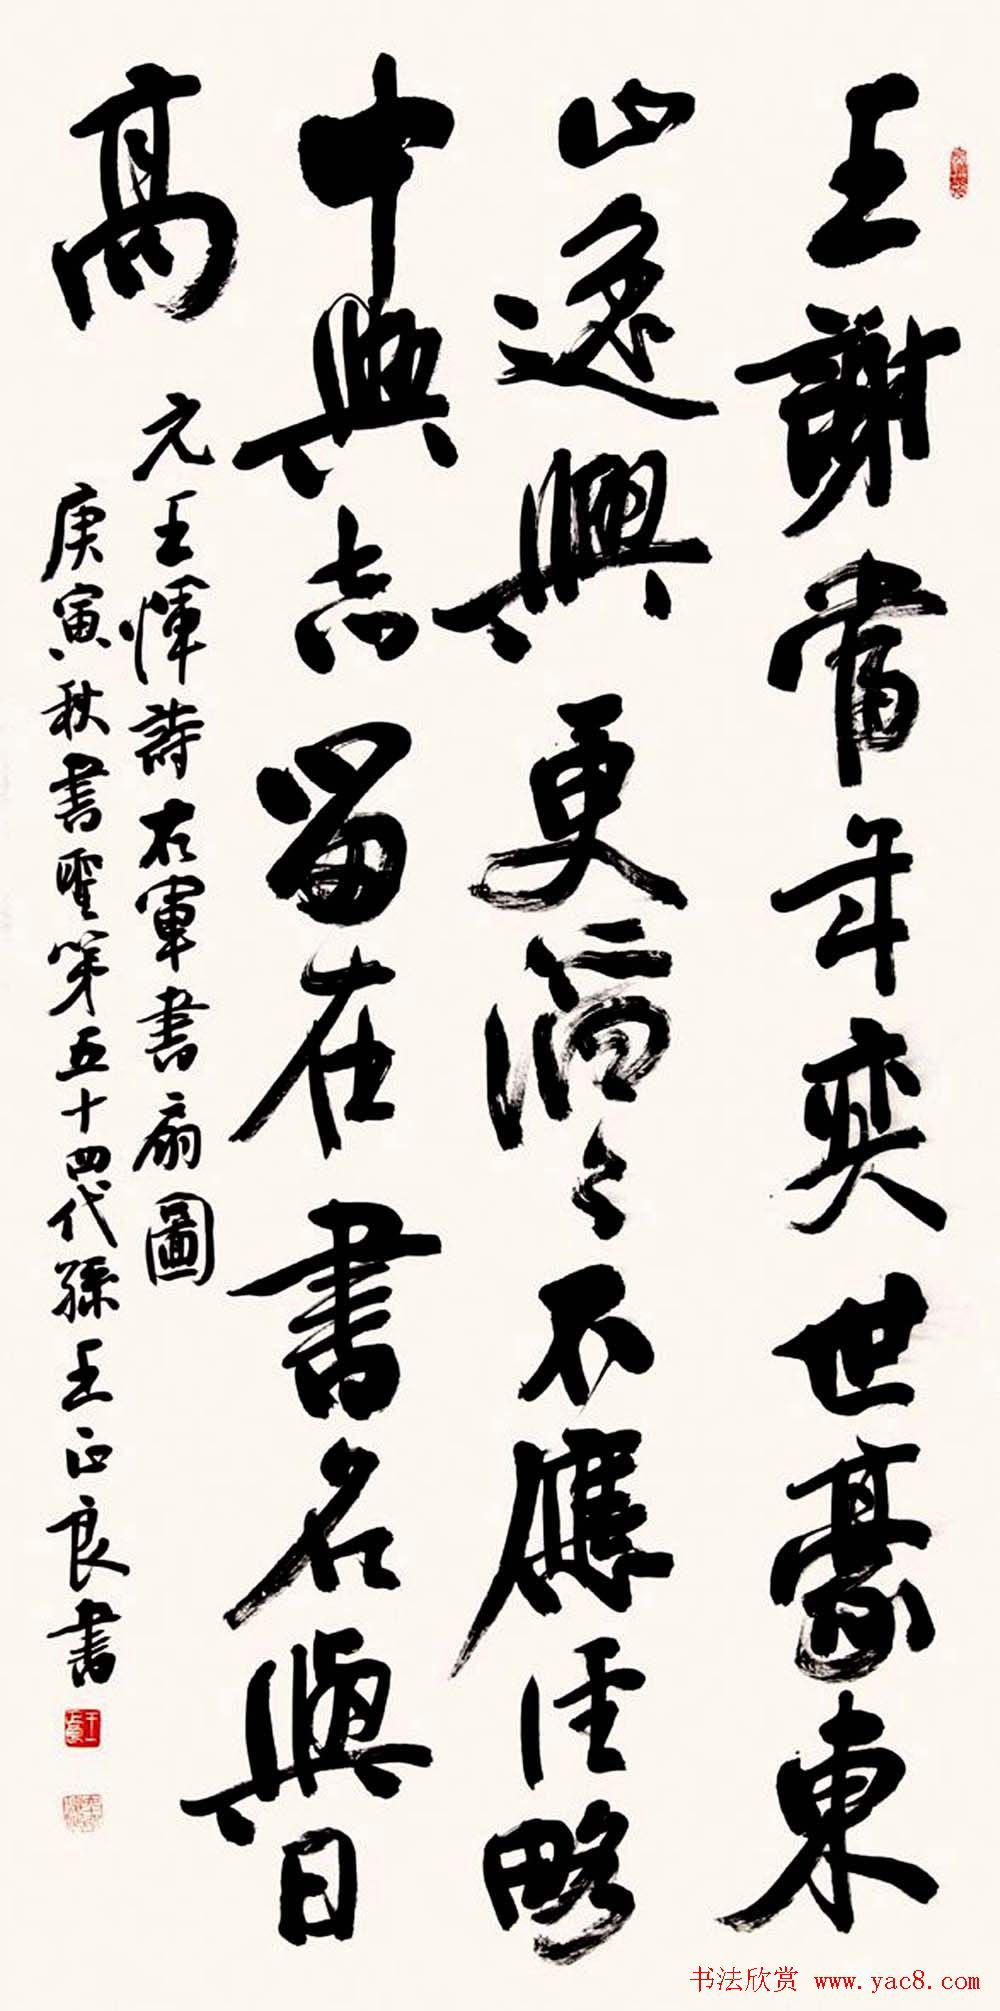 王謝當年奕世豪東
山逸興更滔々不應經略
中興志留在書名與日
高
元王惲詩右軍書扇圖
庚寅秋書聖第五十四代孫王正良書
书法欣赏 www.yac8.com